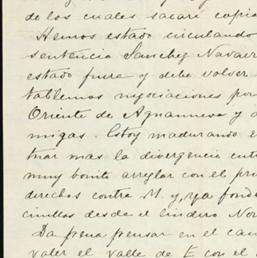 de los cuales sacaré copia
Hemos estado circulando
sentencia Sanchez Navarr
estado fuera y debe volver
tablemos negociaciones por
Oriente de Agnanueva y a
migas. Estoy madurando e
tuar mas la divergencia entr
muy bonito arreglar con el pri
derechos contra M. y, ya fond
cinillas desde el lindero Nor
Da pena pensar en el cam
valer el valle de E con el a